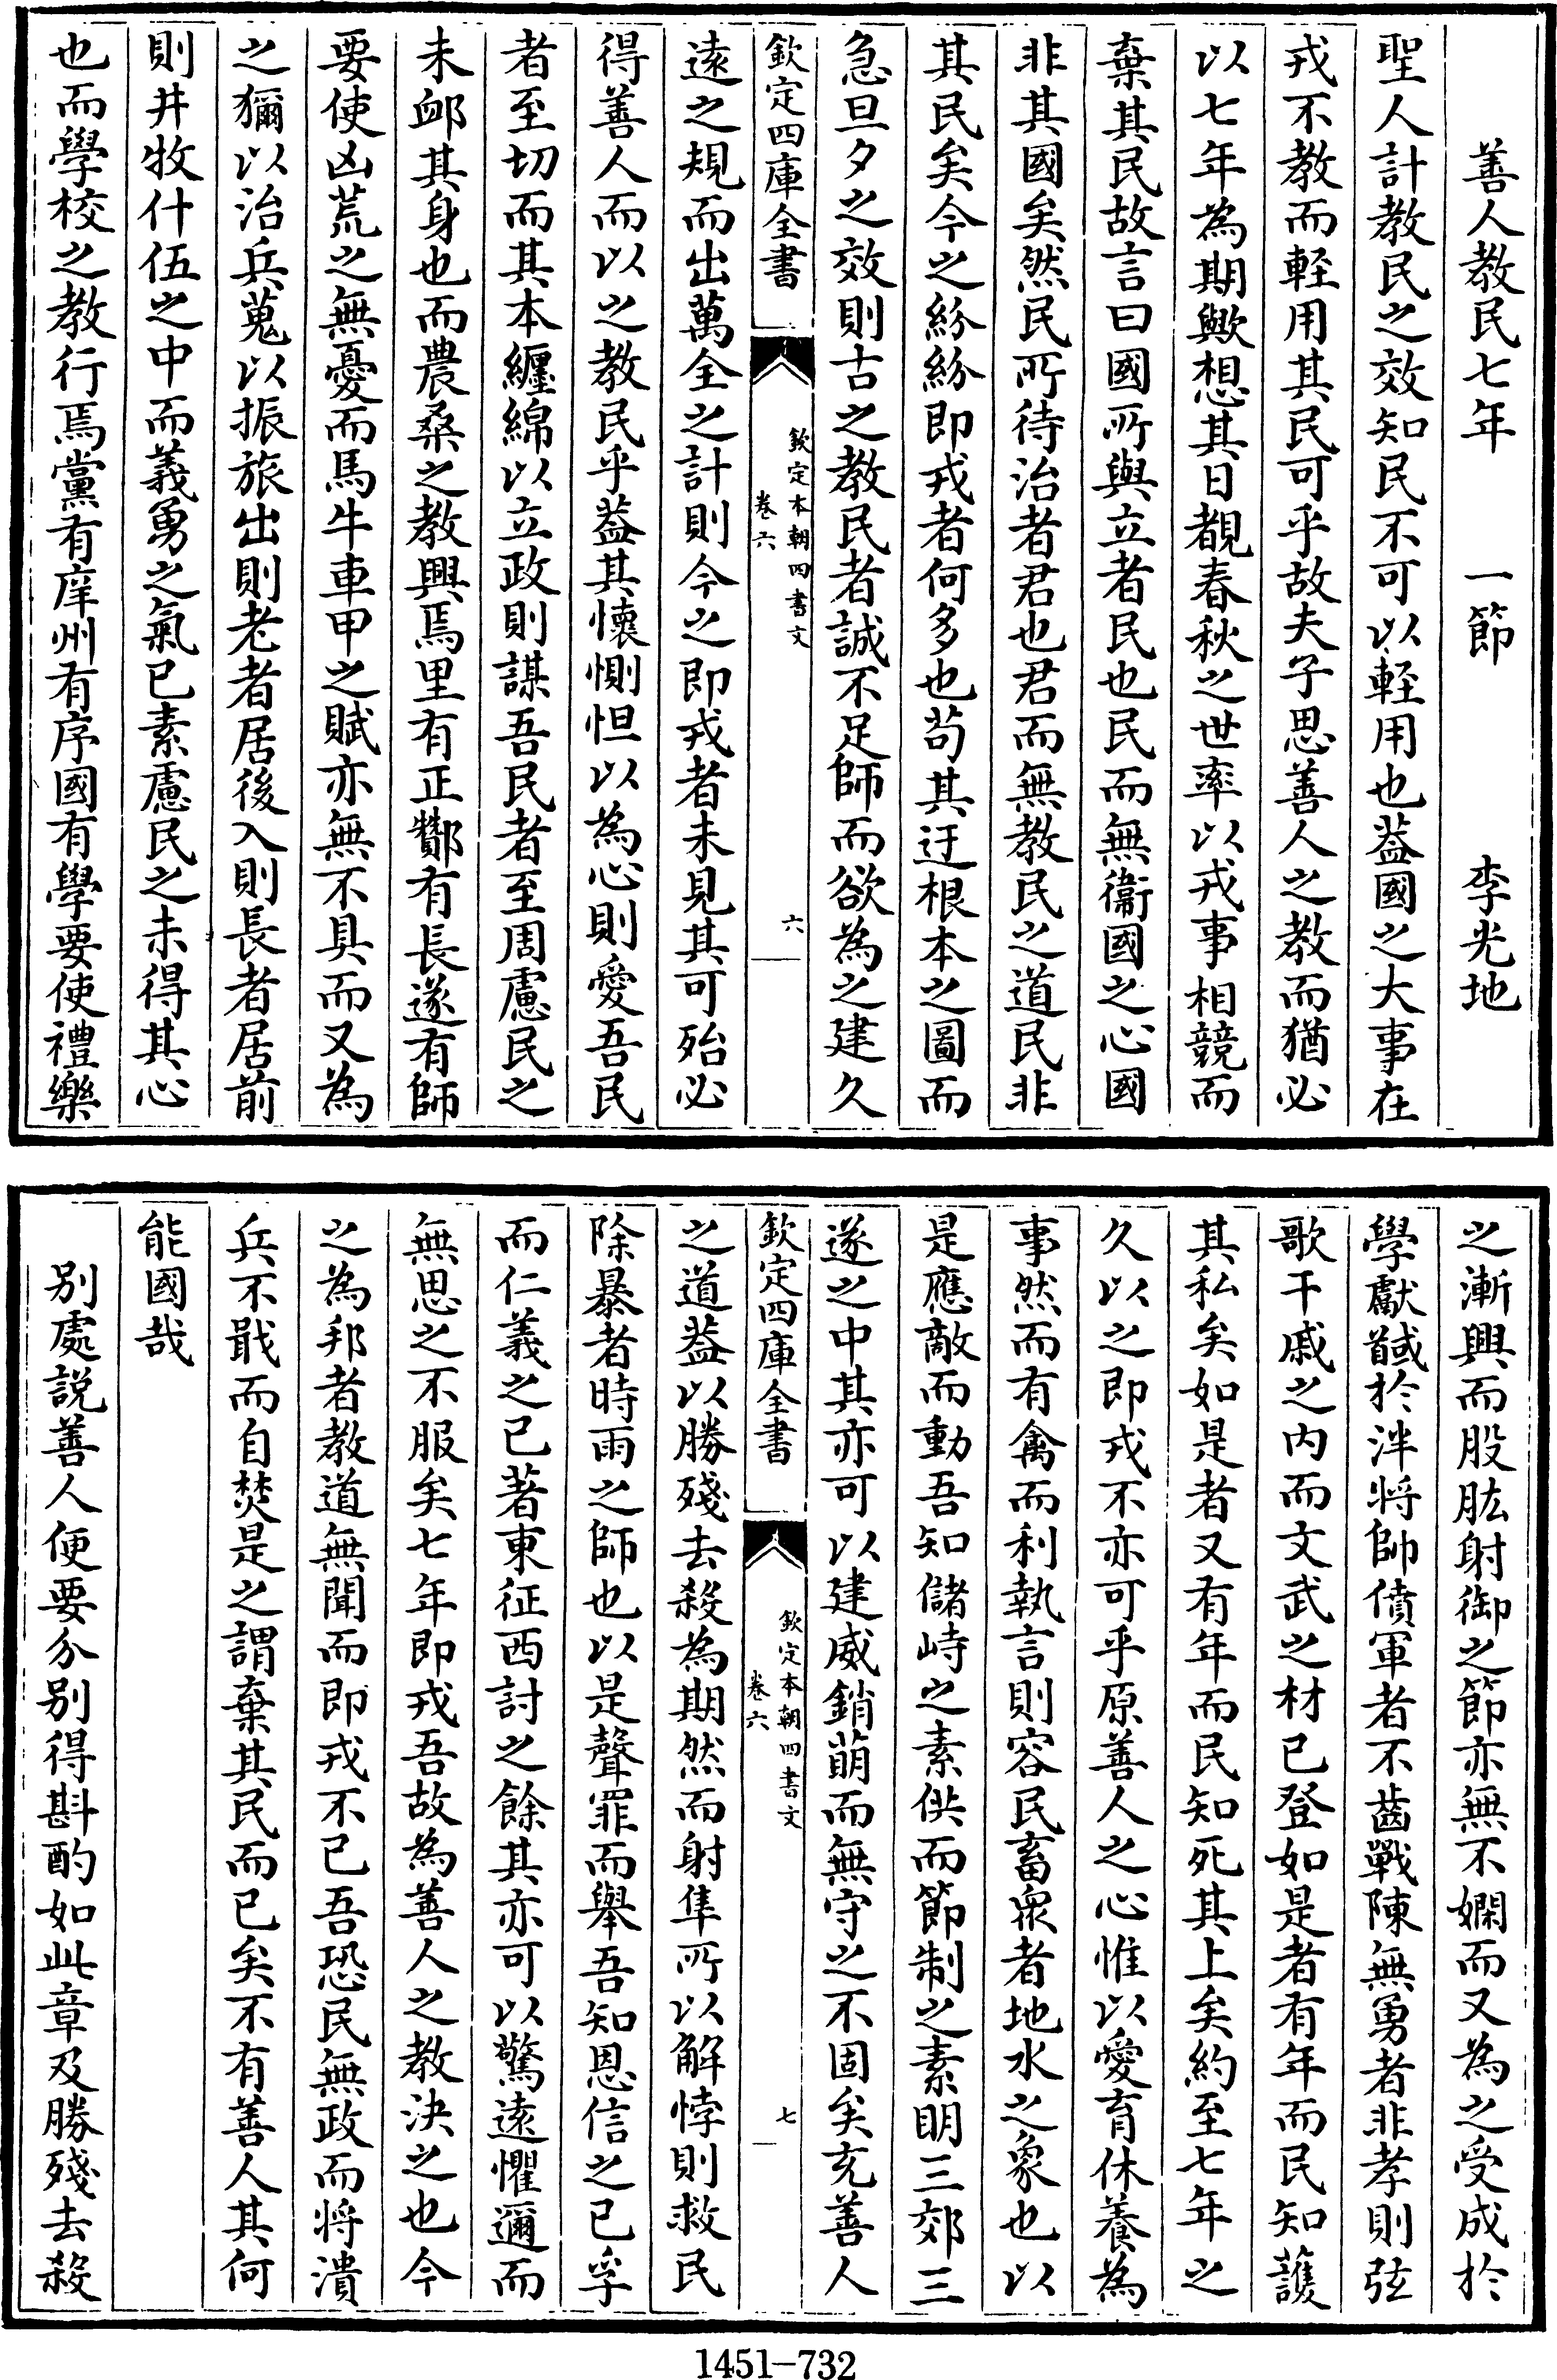 善人教民七年　一節　李光地
聖人計教民之效知民不可以輕用也葢國之大事在
戎不教而輕用其民可乎故夫子思善人之教而猶必
以七年為期歟想其日覩春秋之世率以戎事相競而
棄其民故言曰國所與立者民也民而無衞國之心國
非其國矣然民所待治者君也君而無教民之道民非
其民矣今之紛紛即戎者何多也茍其迂根本之圖而
急旦夕之效則古之教民者誠不足師而欲為之建久
欽定四庫全書
欽定本朝四書文
卷六
六
遠之規而出萬全之計則今之即戎者未見其可殆必
得善人而以之教民乎葢其懷惻怛以為心則愛吾民
者至切而其本纏綿以立政則謀吾民者至周慮民之
未䘏其身也而農桑之教興焉里有正酇有長遂有師
要使凶荒之無憂而馬牛車甲之賦亦無不具而又為
之獮以治兵蒐以振旅出則老者居後入則長者居前
則井牧什伍之中而義勇之氣已素慮民之未得其心
也而學校之教行焉黨有庠州有序國有學要使禮樂
之漸興而股肱射御之節亦無不嫻而又為之受成於
學獻馘於泮將帥僨軍者不齒戰陳無勇者非孝則弦
歌干戚之内而文武之材已登如是者有年而民知護
其私矣如是者又有年而民知死其上矣約至七年之
久以之即戎不亦可乎原善人之心惟以愛育休養為
事然而有禽而利執言則容民畜衆者地水之象也以
是應敵而動吾知儲峙之素供而節制之素明三郊三
遂之中其亦可以建威銷萌而無守之不固矣充善人
欽定四庫全書
欽定本朝四書文
卷六
七
之道葢以勝殘去殺為期然而射隼所以解悖則救民
除暴者時雨之師也以是聲罪而舉吾知恩信之已孚
而仁義之已著東征西討之餘其亦可以驚遠懼邇而
無思之不服矣七年即戎吾故為善人之教決之也今
之為邦者教道無聞而即戎不已吾恐民無政而將潰
兵不戢而自焚是之謂棄其民而已矣不有善人其何
能國哉
別處説善人便要分別得斟酌如此章及勝殘去殺
1451-732